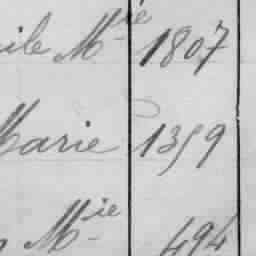 ile M^ie 1807
Marie 1359
M^ie 494